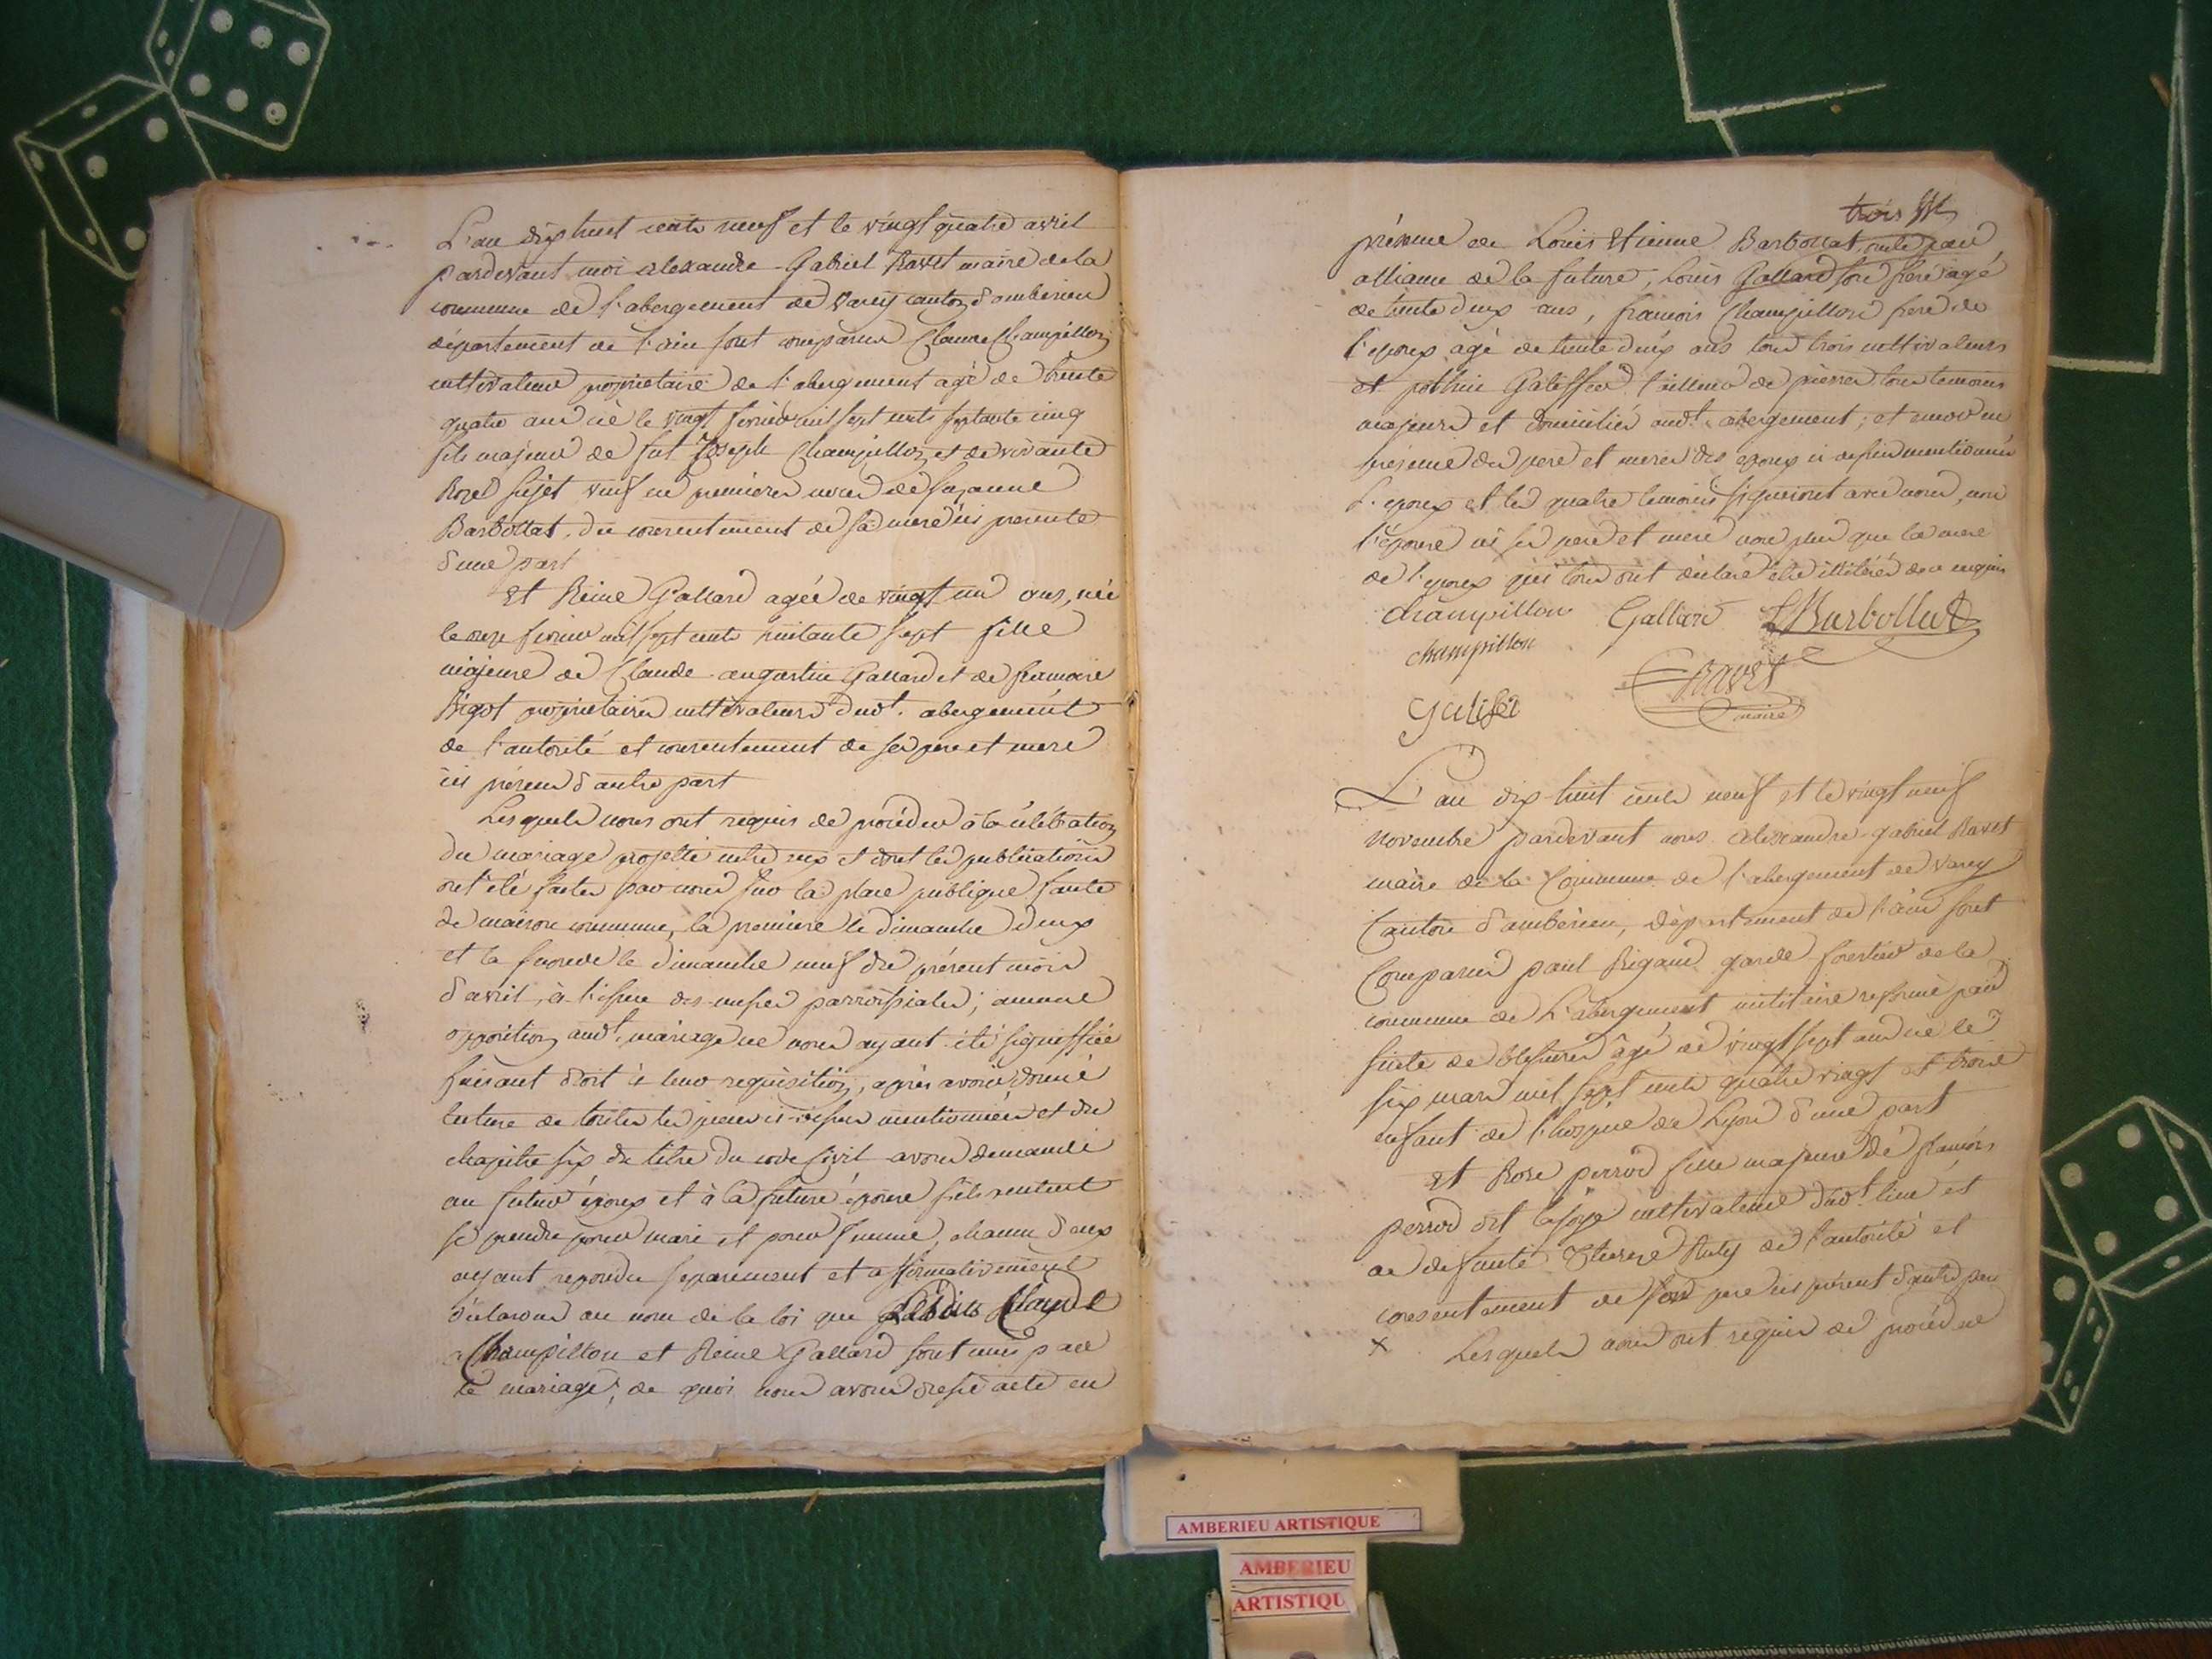 L'an dix huit cents neuf et le vingt quatre avril
pardevant moi alexandre Gabriel Ravet maire de la
commune de l'abergement de Varey canton d'ambérieu
département de l'ain sont comparus Claude Champillon
cultivateur propriétaire de l'abergement agé de trente
quatre ans né le vingt fevrier mil sept cents septante cinq
fils majeur de fut Joseph Champillon et de vivante
Rozet sujet veuf en premieres noces de suzanne
Barbollat, du consentement de sa mere ici presente
d'une part
Et Reine Gallard agée de vingt un ans, née
le onze fevrier mil sept cents huitante sept fille
majeure de Claude augustin Gallard et de francoise
Bigot propriétaires cultivateurs dudt. abergement
de l'autorité et consentement de ses pere et mere
ici présens d'autre part
Lesquels nous ont requis de procéder à la célébration
du mariage projetté entre eux et dont les publications
ont été faites par nous sur la place publique faute
de maison commune, la premiere le dimanche deux
et la seconde le dimanche neuf du présent mois
d'avril, à l'issue des messes parroissiales; aucune
opposition audt. mariage ne nous ayant été signiffiée
faisant droit à leur requisition, après avoir donné
lecture de toutes les pieces ci-dessus mentionnées et du
chapitre six du titre du code Civil avons demandé
au futur époux et à la future épouse s'ils veulent
se prendre pour mari et pour femme, chacun d'eux
ayant repondu separement et affirmativement
déclarons au nom de la loi que Claude
Champillon et Reine Gallard sont unis par
le mariage; de quoi nous avons dressé acte en
trois
présence de Louis Etienne Barbollat oncle par
alliance de la future, Louis Gallard son frere agé
de trente deux ans, francois Champillon frere de
l'epoux agé de trente deux ans tous trois cultivateurs
et Galiffet tailleur de pierres tous temoins
majeurs et domiciliés audt. abergement; et encor en
presence des pere et meres des epoux ci dessus mentionnés
L'epoux et les quatre temoins signeront avec nous, non
l'épouse ni ses pere et mere non plus que la mere
de l'epoux qui tous ont déclaré être illitérés de ce enquis
champillon Galliard Barbollat
champillon
Ravet
maire
Galifet
L'an dix-huit cents neuf et le vingt neuf
novembre pardevant nous alexandre-gabriel Ravet
maire de la Commune de l'abergement de Varey
Canton d'ambérieu, département de l'ain sont
Comparus paul Rigaud garde forestier de la
commune de L'abergement militaire réformé par
suite de blessures âgé de vingt sept ans né le
six mars mil sept cents quatre vingt et trois
enfant de l'hospice de Lyon d'une part
et Rose perrod fille majeure de francois
perrod dit cultivateur dudt. lieu et
de défunte Therese Ruty de l'autorité et
consentement de son pere ici présent d'autre part
x Lesquels nous ont requis de procéder
AMBERIEU ARTISTIQUE
AMBERIEU
ARTISTIQU